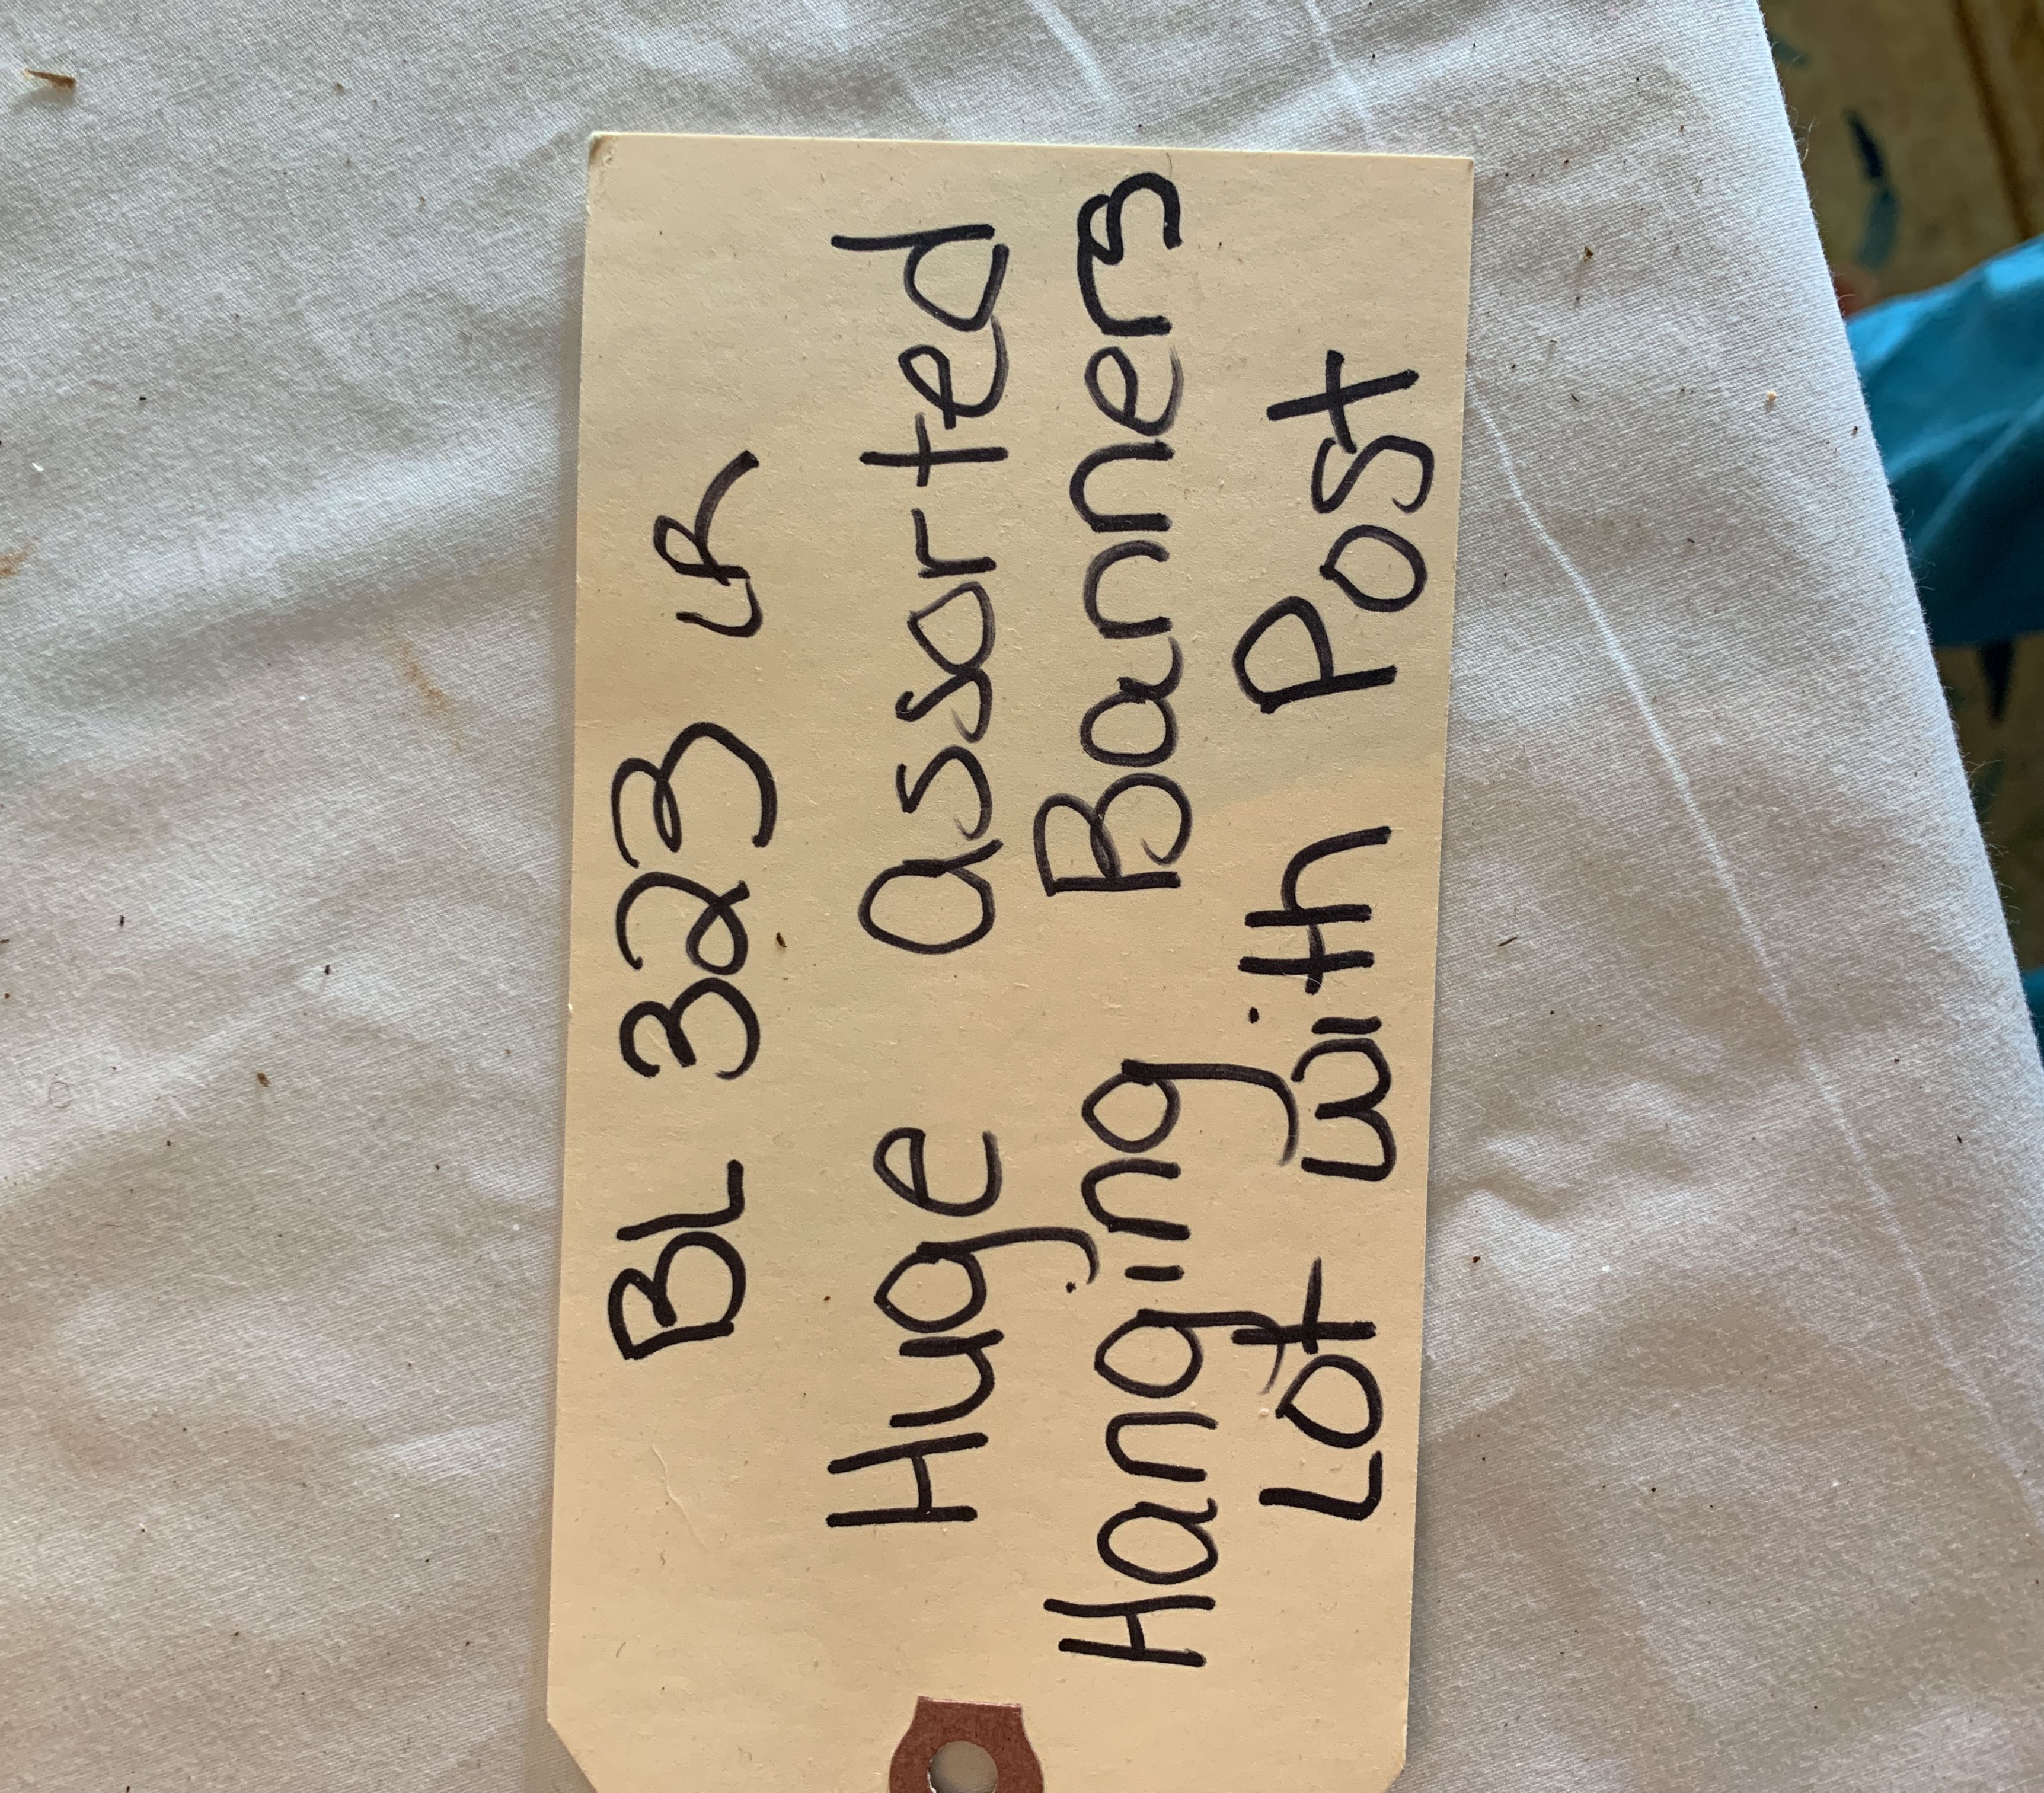 BL 323 LR
Huge assorted
Hanging Banners
Lot with Post